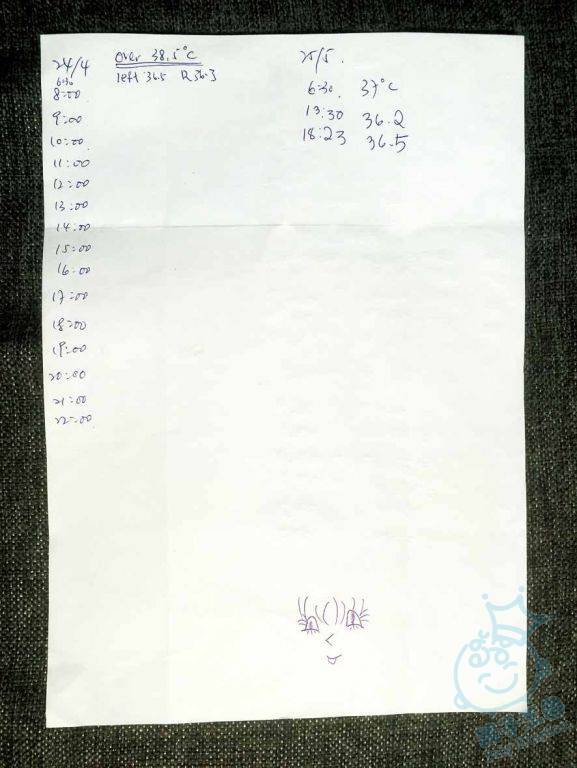 24/4 over 38.5°C
6:30 left 36.5 R 36.3
8:00
9:00
10:00
11:00
12:00
13:00
14:00
15:00
16:00
17:00
18:00
19:00
20:00
21:00
22:00
25/5.
6:30. 37°C
13:30 36.2
18:23 36.5